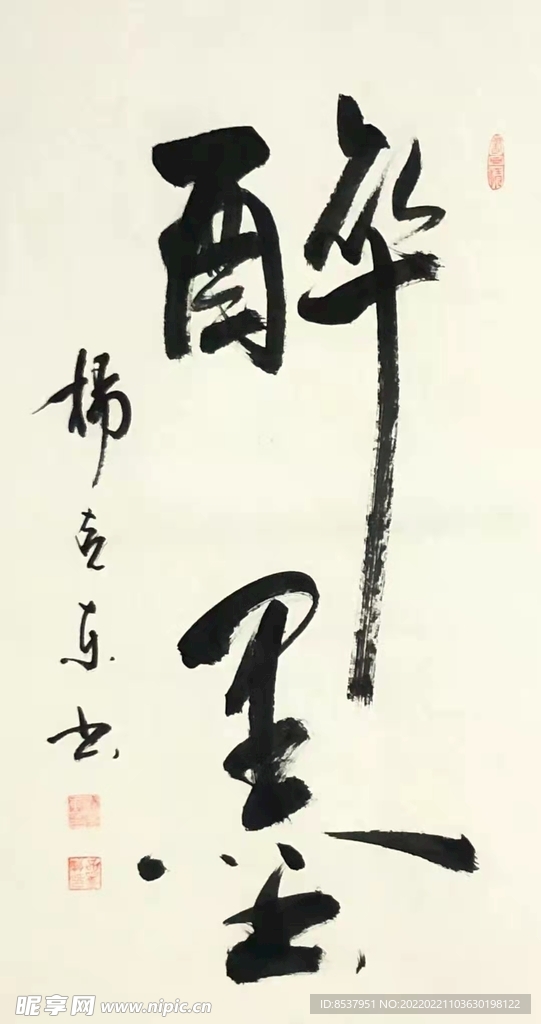 醉墨
楊东书
昵享网 www.nipic.cn
ID:8537951 NO:20220221103630198122